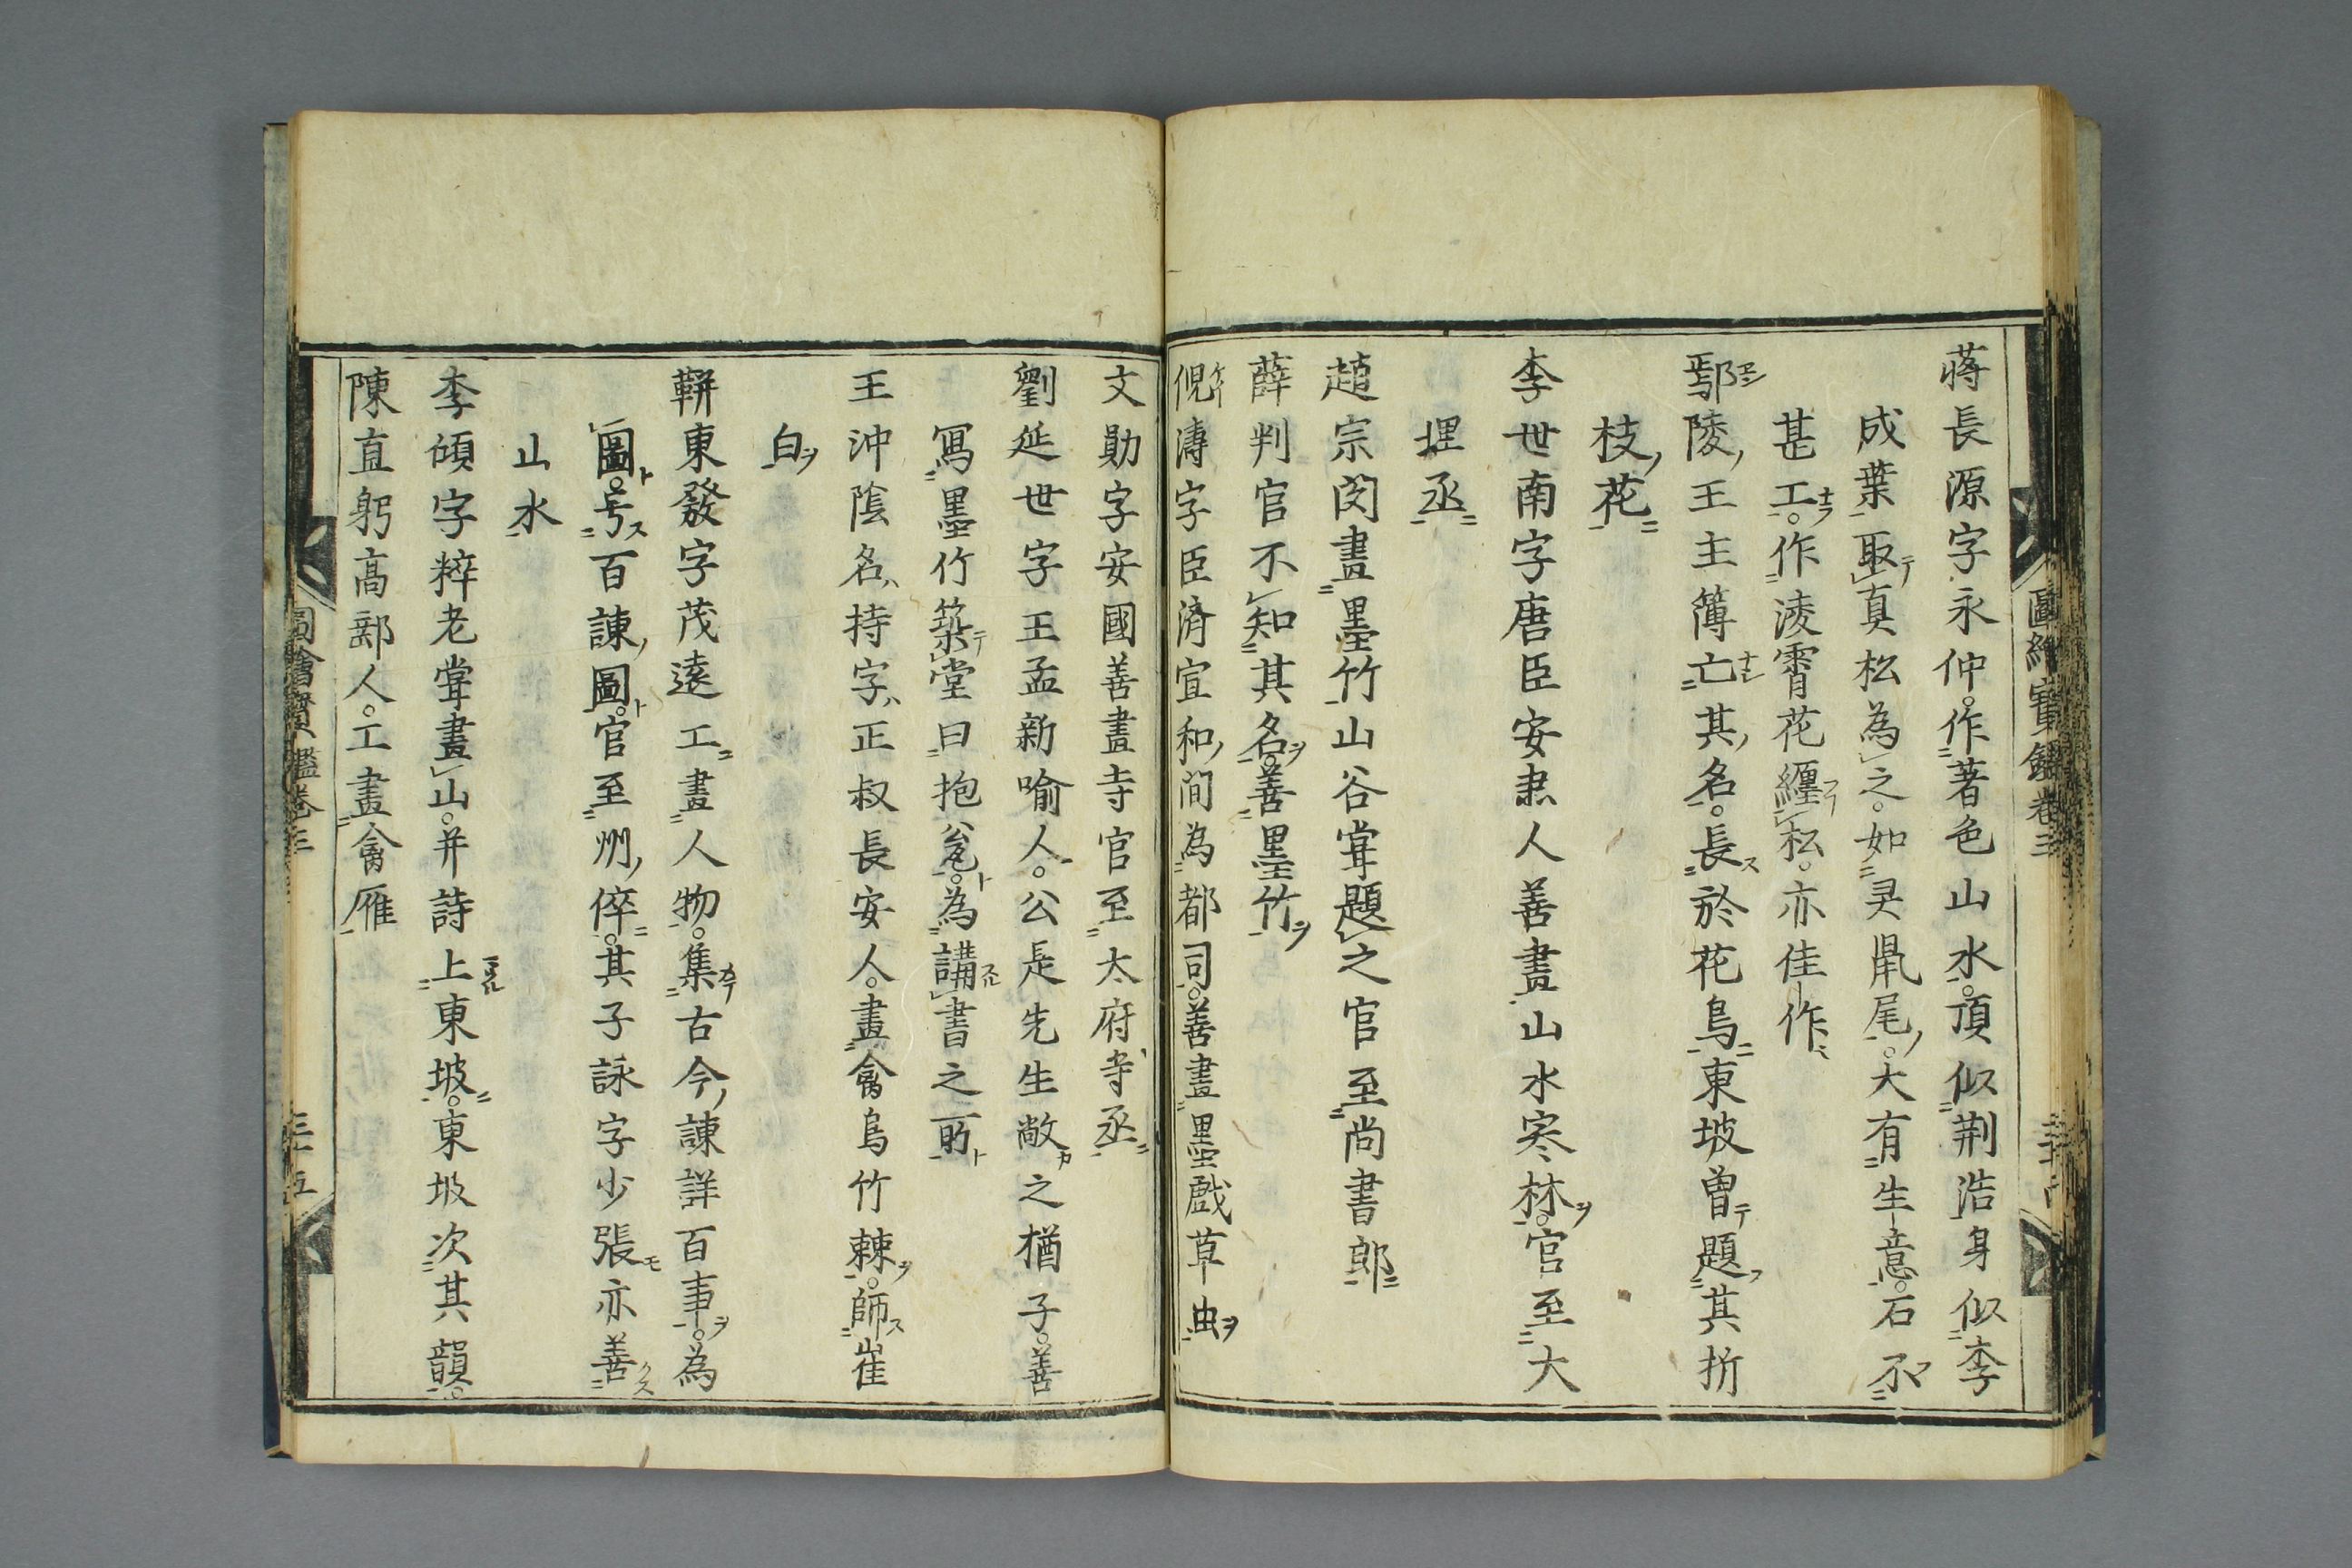 蔣長源字永仲。作著色山水。頂似荆浩身似李
成葉取真松為之。如灵鼡尾。大有生意。石不
甚工。作淩霄花纒松。亦佳作
鄢陵王主簿亡其名。長於花鳥東坡曽題其折
枝花
李世南字唐臣安肅人善畫山水寒林。官至大
理丞
趙宗閔畫墨竹山谷甞題之官至尚書郎
薛判官不知其名。善墨竹
倪濤字巨濟宣和間為都司。善畫墨戲草虫
文勛字安國善畫寺官至太府寺丞
劉延世字王孟新喻人。公是先生敞之猶子。善
寫墨竹築堂曰抱瓮。為講書之所
王沖隂名持字正叔長安人。畫禽鳥竹棘。師崔
白
靳東發字茂遠工畫人物。集古今諫諍百事。為
圖。号百諫圖。官至州倅。其子詠字少張亦善
山水
李頎字粹老甞畫山。并詩上東坡。東坡次其韻。
陳直躬高郵人。工畫禽雁
圖繪寶鑑卷三
圖繪寶鑑卷三
三十五